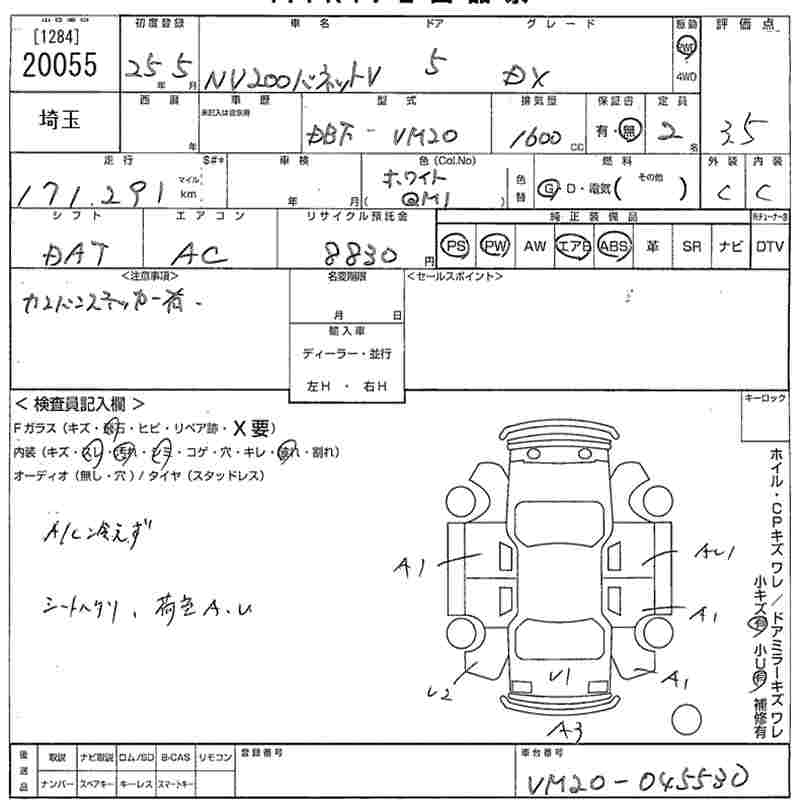 出品番号 初度登録 車名 ドア グレード 駆動 評価点
[1284]
20055 25年 5月 NV200バネットV 5 DX 2WD 4WD 3.5
埼玉 西暦 年 車歴 未記入は自家用 型式 DBF-VM20 排気量 1600cc 保証書 有・無 定員 2名
走行 171,291 マイル km S#* 車検 年 月 色(Col.No) ホワイト QM1 ( ) 色替 燃料 G・D・電気( その他 ) 外装 C 内装 C
シフト DAT エアコン AC リサイクル預託金 8830円 純正装備品
PS PW AW エアB ABS 革 SR ナビ DTV
<注意事項> 名変期限 <セールスポイント>
カンバンステッカー有.
月 日
輸入車
ディーラー・並行
左H ・ 右H
<検査員記入欄> キーロック
Fガラス(キズ・飛石・ヒビ・リペア跡・X要)
内装(キズ・スレ・汚れ・シミ・コゲ・穴・キレ・破れ・割れ)
オーディオ(無し・穴)/タイヤ(スタッドレス)
A/C冷えず
シートヘタリ、荷室A.U
A1 AU1
A1
U2 U1 A1
A3
ホイル・CPキズ ワレ/ドアミラーキズ ワレ
小キズ有 小U有 補修有
後送品 取説 ナビ取説 ロム/SD B-CAS リモコン 登録番号 車台番号
ナンバー スペアキー キーレス スマートキー VM20-045530